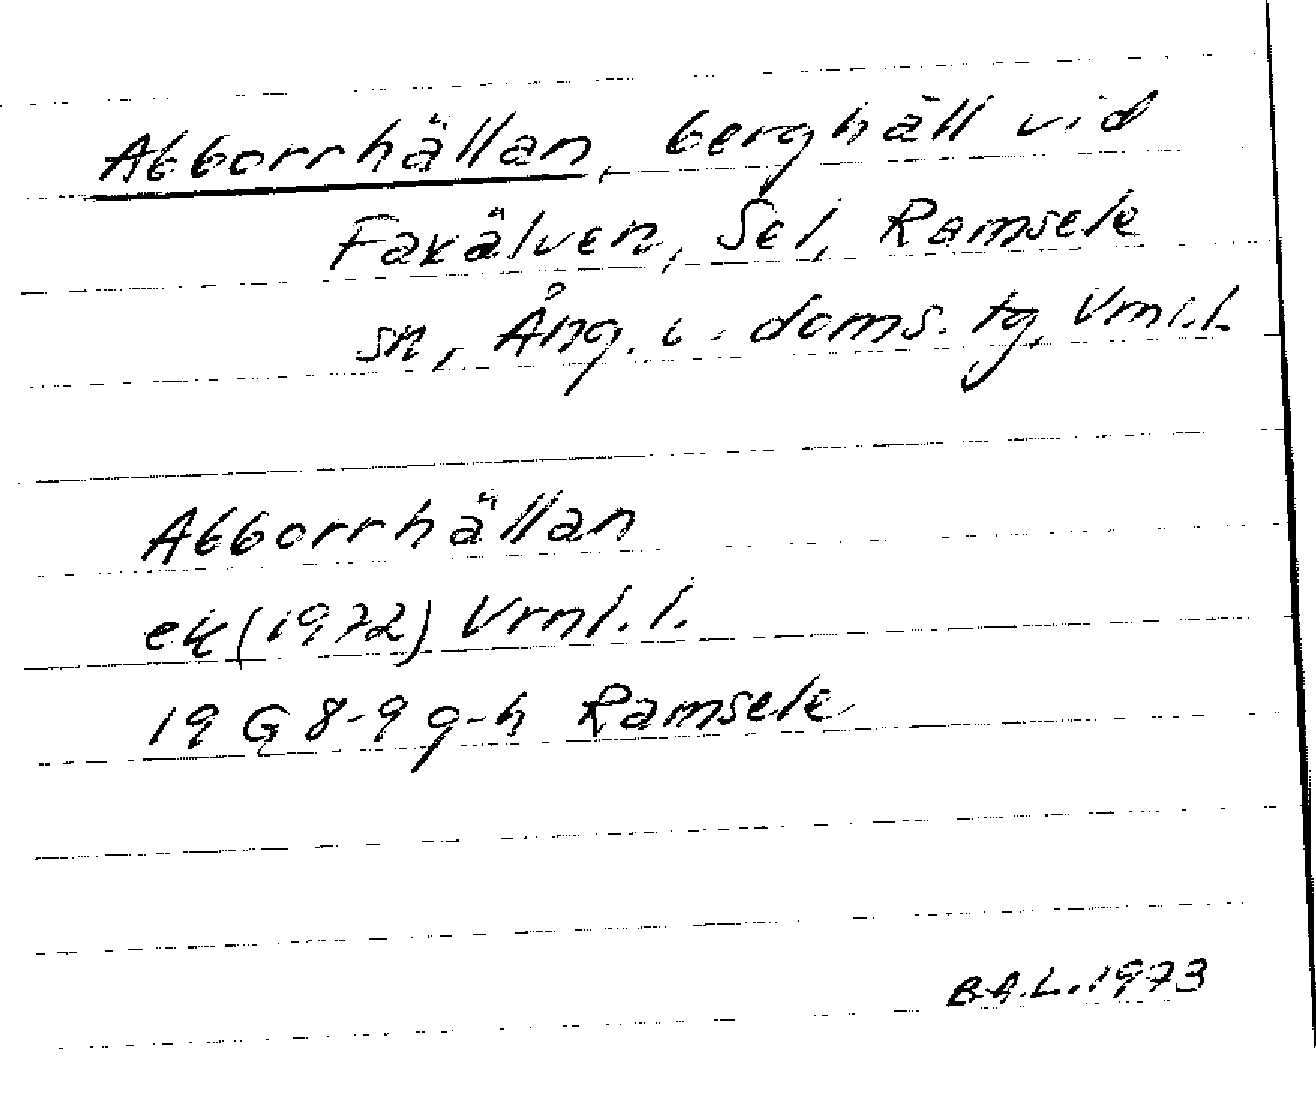 Abborrhällan, berghäll vid
Faxälven, Sel, Ramsele
sn, Ång. v. doms. tg, Vrnl.l.
Abborrhällan
ek (1972) Vrnl. l.
19 G 8-9 g-h Ramsele
B.A.L. 1973